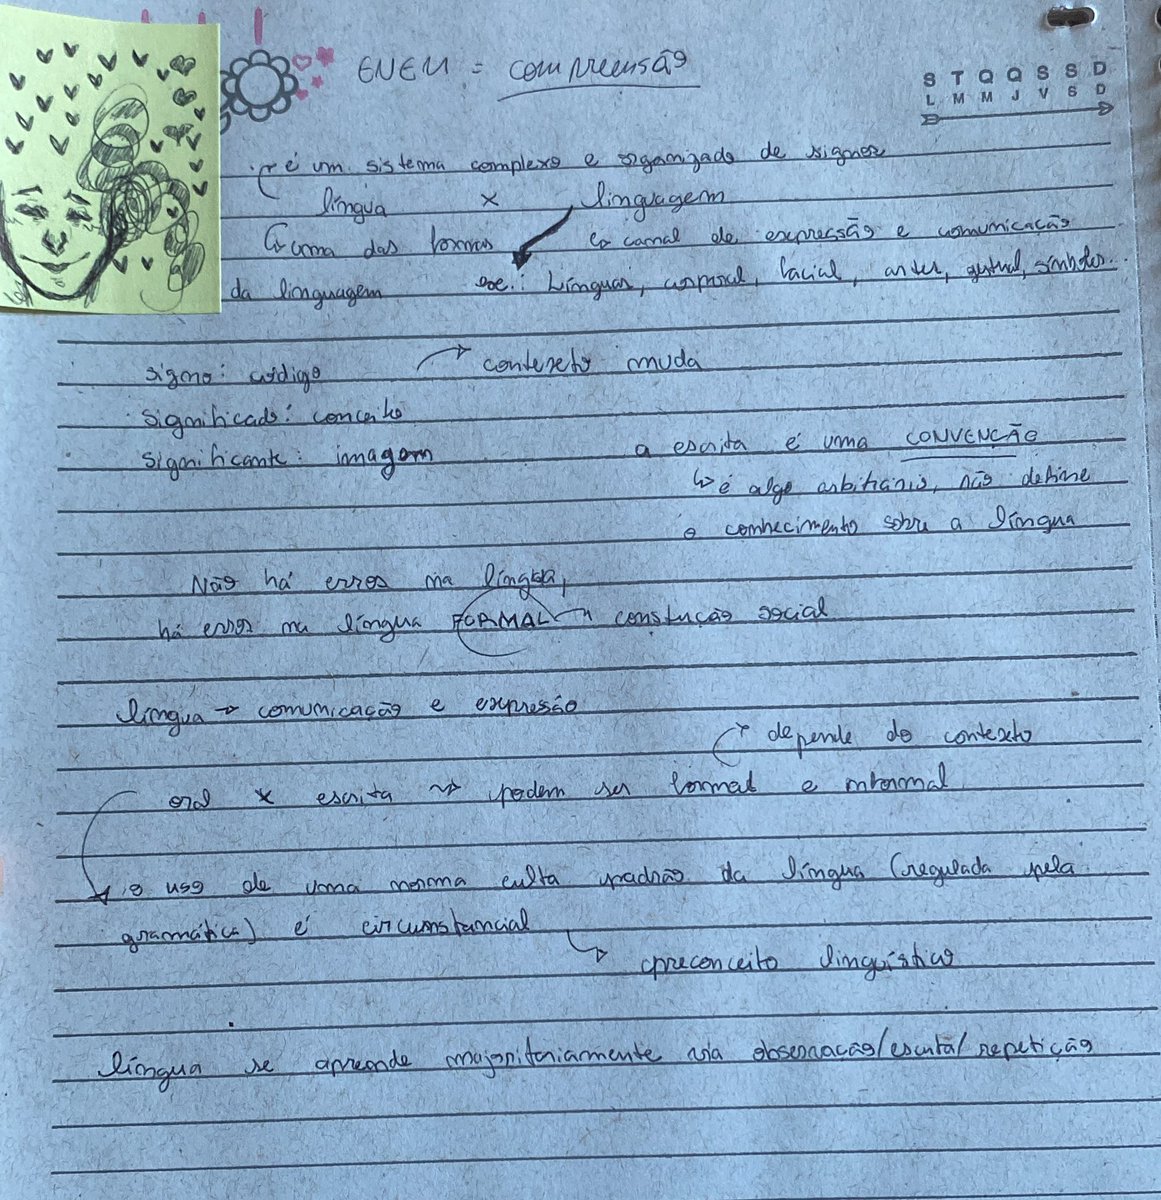 ENEM = compreensão
S T Q Q S S D
L M M J V S D
é um sistema complexo e organizado de signos
língua x linguagem
uma das formas ↳ canal de expressão e comunicação
da linguagem exe.: Línguas, corporal, facial, artes, gutural, símbolos...
signo: código → contexto muda
significado: conceito
significante: imagem a escrita é uma CONVENÇÃO
↳ é algo arbitrário, não define
o conhecimento sobre a língua
Não há erros na língua,
há erros na língua FORMAL → constução social
língua → comunicação e expressão
→ depende do contexto
oral x escrita → podem ser formal e informal
o uso de uma norma culta padrão da língua (regulada pela
gramática) é circunstancial
preconceito linguístico
língua se aprende majoritariamente via observação/escuta/repetição